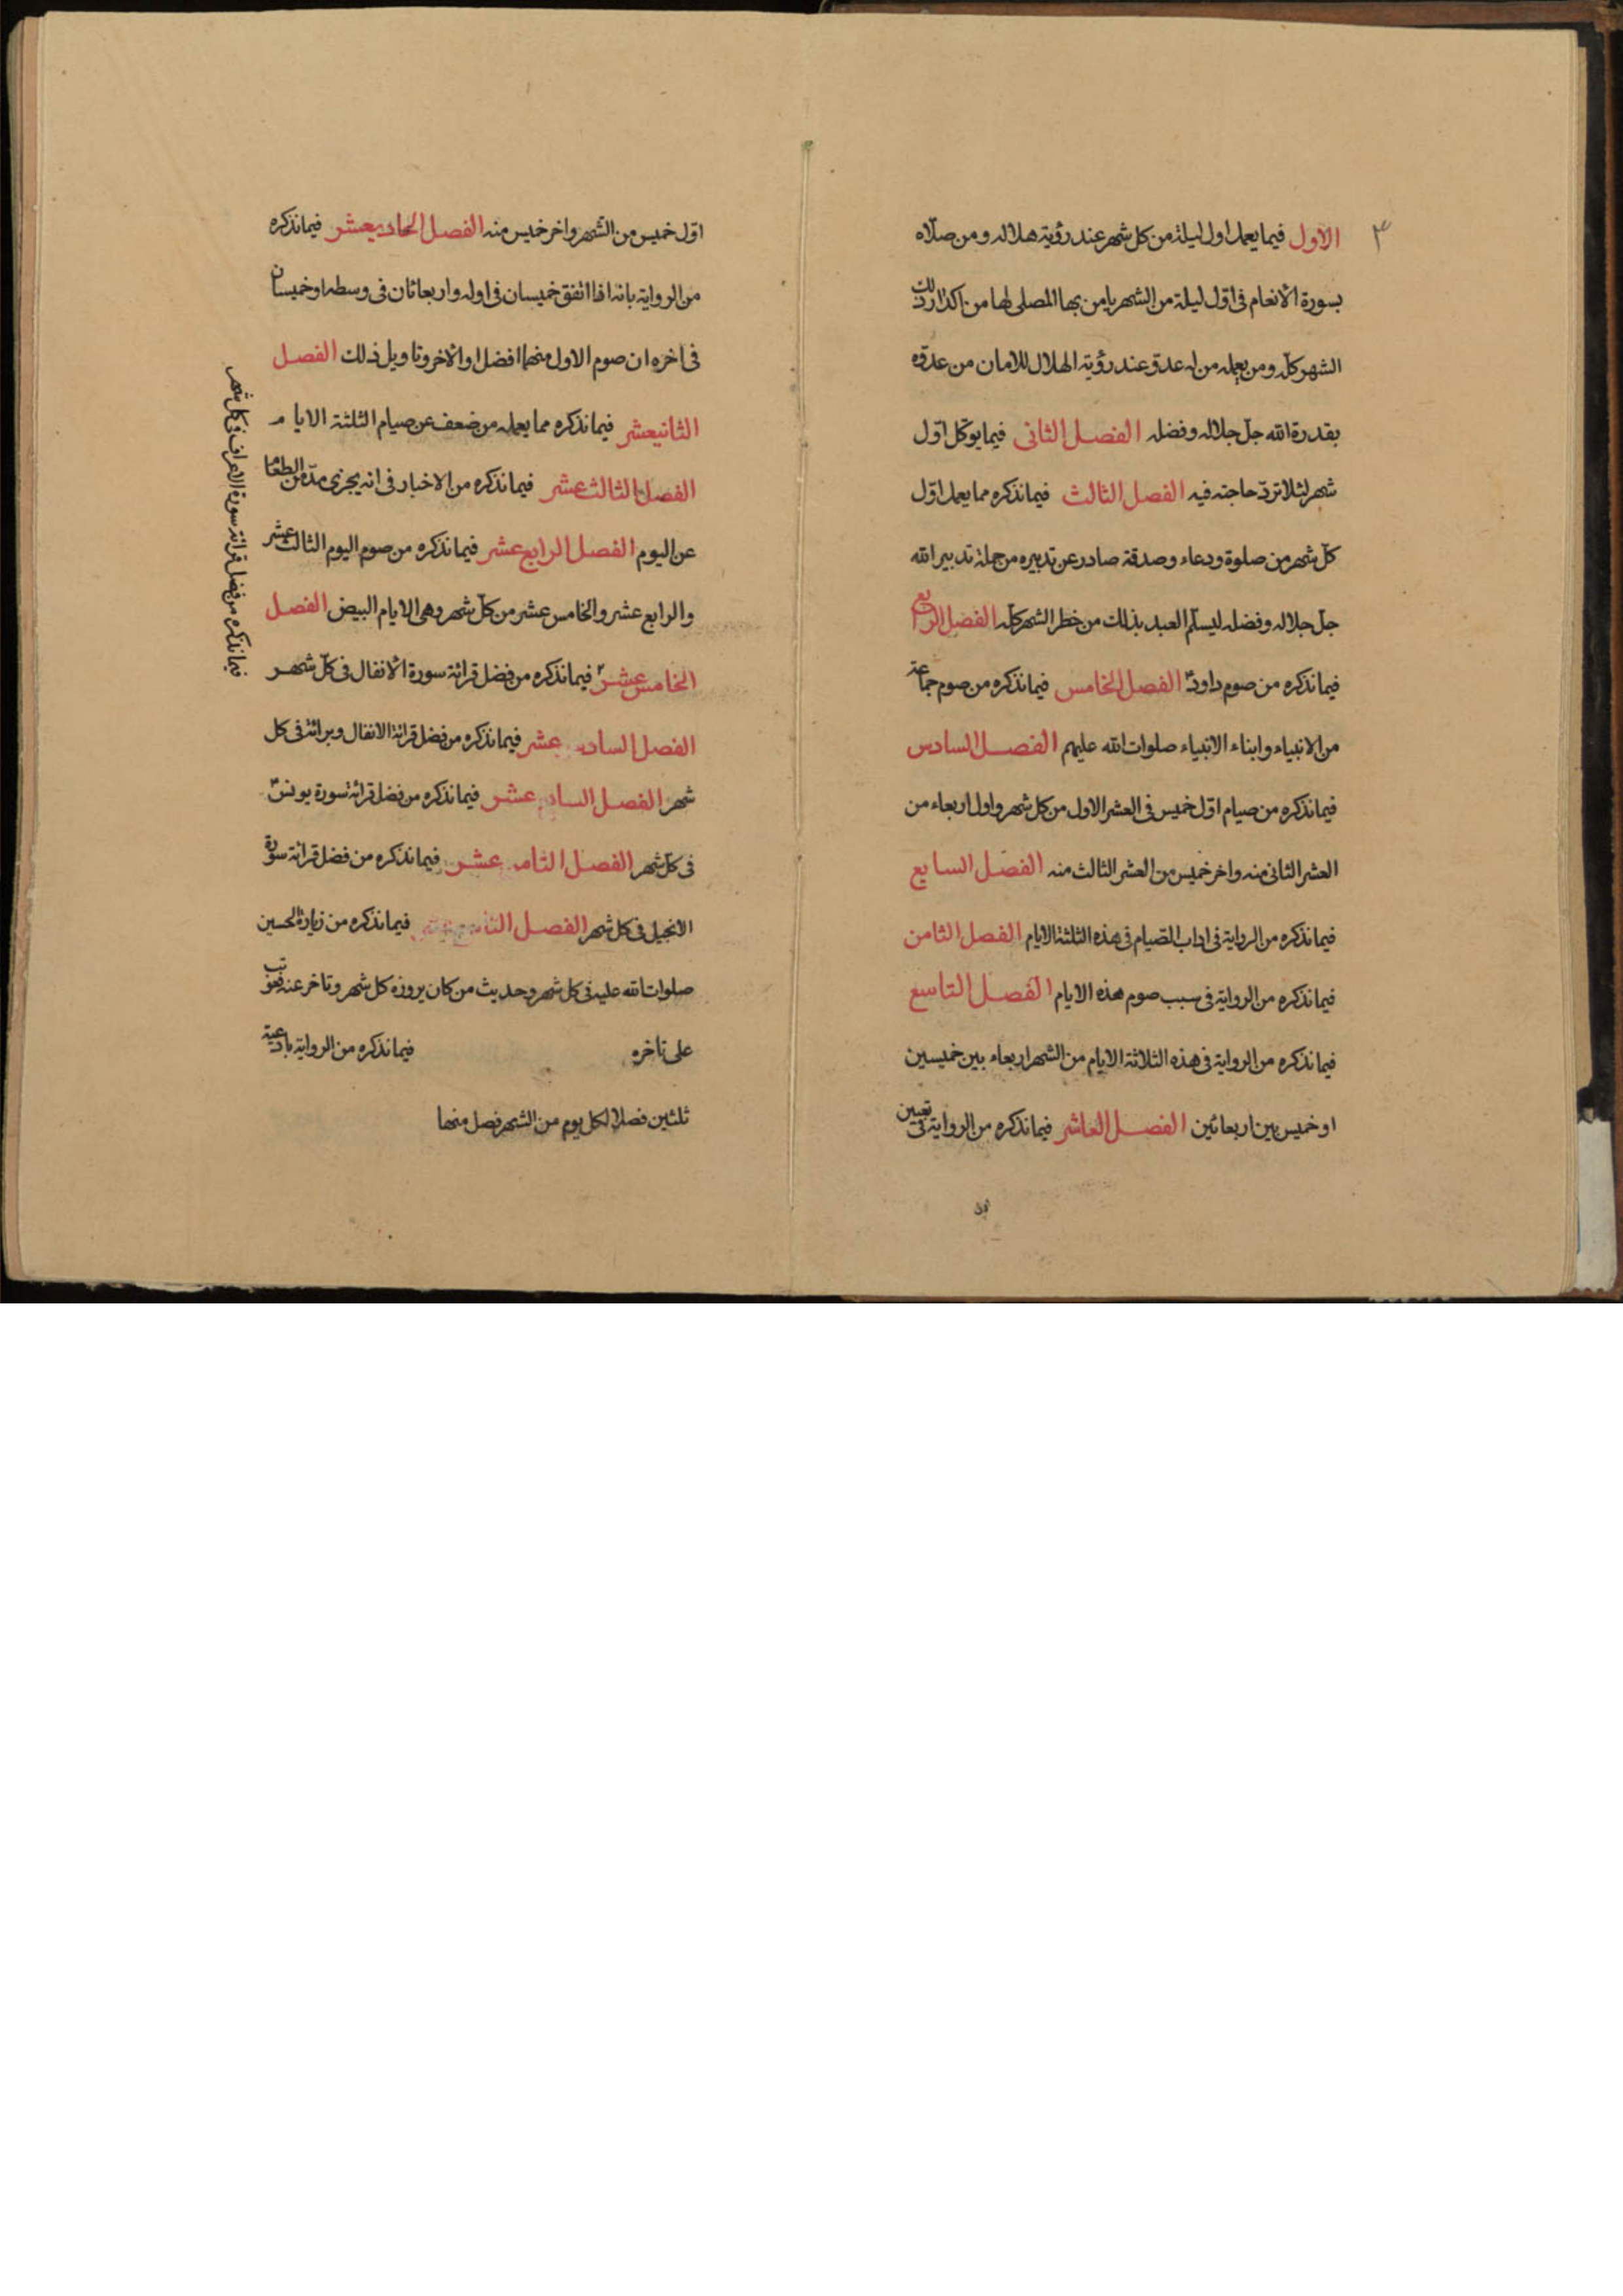 الاول فيما يعمل اول ليلة من كل شهر عند رؤية هلاله ومن صلاة
بسورة الانعام فى اوّل ليلة من الشهر يامن بها المصلى لها من اكدار ذلك
الشهر كلّه ومن يعمله من له عدوّ عند رؤية الهلال للامان من عدوّه
بقدرة الله جلّ جلاله وفضله الفصل الثانى فيما يوكل اوّل
شهر لئلا تردّ حاجته فيه الفصل الثالث فيما نذكره مما يعمل اوّل
كلّ شهر من صلوة ودعاء وصدقة صادر عن تدبيره من جملة تدبير الله
جلّ جلاله وفضله ليسلم العبد بذلك من خطر الشهر كلّه الفصل الرابع
فيما نذكره من صوم داود الفصل الخامس فيما نذكره من صوم جماعة
من الانبياء وابناء الانبياء صلوات الله عليهم الفصل السادس
فيما نذكره من صيام اوّل خميس فى العشر الاول من كل شهر واول اربعاء من
العشر الثانى منه واخر خميس من العشر الثالث منه الفصل السابع
فيما نذكره من الرواية فى اداب الصّيام فى هذه الثلثة الايام الفصل الثامن
فيما نذكره من الرواية فى سبب صوم هذه الايام الفصل التاسع
فيما نذكره من الرواية فى هذه الثلاثة الايام من الشهر اربعاء بين خميسين
او خميس بين اربعائين الفصل العاشر فيما نذكره من الرواية فى تعيين
اول
اوّل خميس من الشهر واخر خميس منه الفصل الحاديعشر فيما نذكره
من الرواية بانه اذا اتفق خميسان فى اوله واربعاثان فى وسطه او خميسان
فى اخره ان صوم الاول منهما افضل او الاخر وتاويل ذلك الفصل
الثانيعشر فيما نذكره مما يعمله من ضعف عن صيام الثلثة الايام
الفصل الثالث عشر فيما نذكره من الاخبار فى انه يجزى مدّ من الطعام
عن اليوم الفصل الرابع عشر فيما نذكره من صوم اليوم الثالث عشر
والرابع عشر والخامس عشر من كلّ شهر وهى الايام البيض الفصل
الخامس عشر فيما نذكره من فضل قرائة سورة الانفال فى كلّ شهر
الفصل السادس عشر فيما نذكره من فضل قرائة الانفال وبرائة فى كل
شهر الفصل السابع عشر فيما نذكره من فضل قرائة سورة يونس
فى كلّ شهر الفصل الثامن عشر فيما نذكره من فضل قرائة سورة
الانجيل فى كل شهر الفصل التاسع عشر فيما نذكره من زيارة الحسين
صلوات الله عليه فى كل شهر وحديث من كان يزوره كل شهر وتاخر عنه فعوتب
على تاخره فيما نذكره من الرواية بادعية
ثلثين فصلا لكل يوم من الشهر فصل منها
فيما نذكره من فضل قرائة سورة الاعراف فى كل شهر